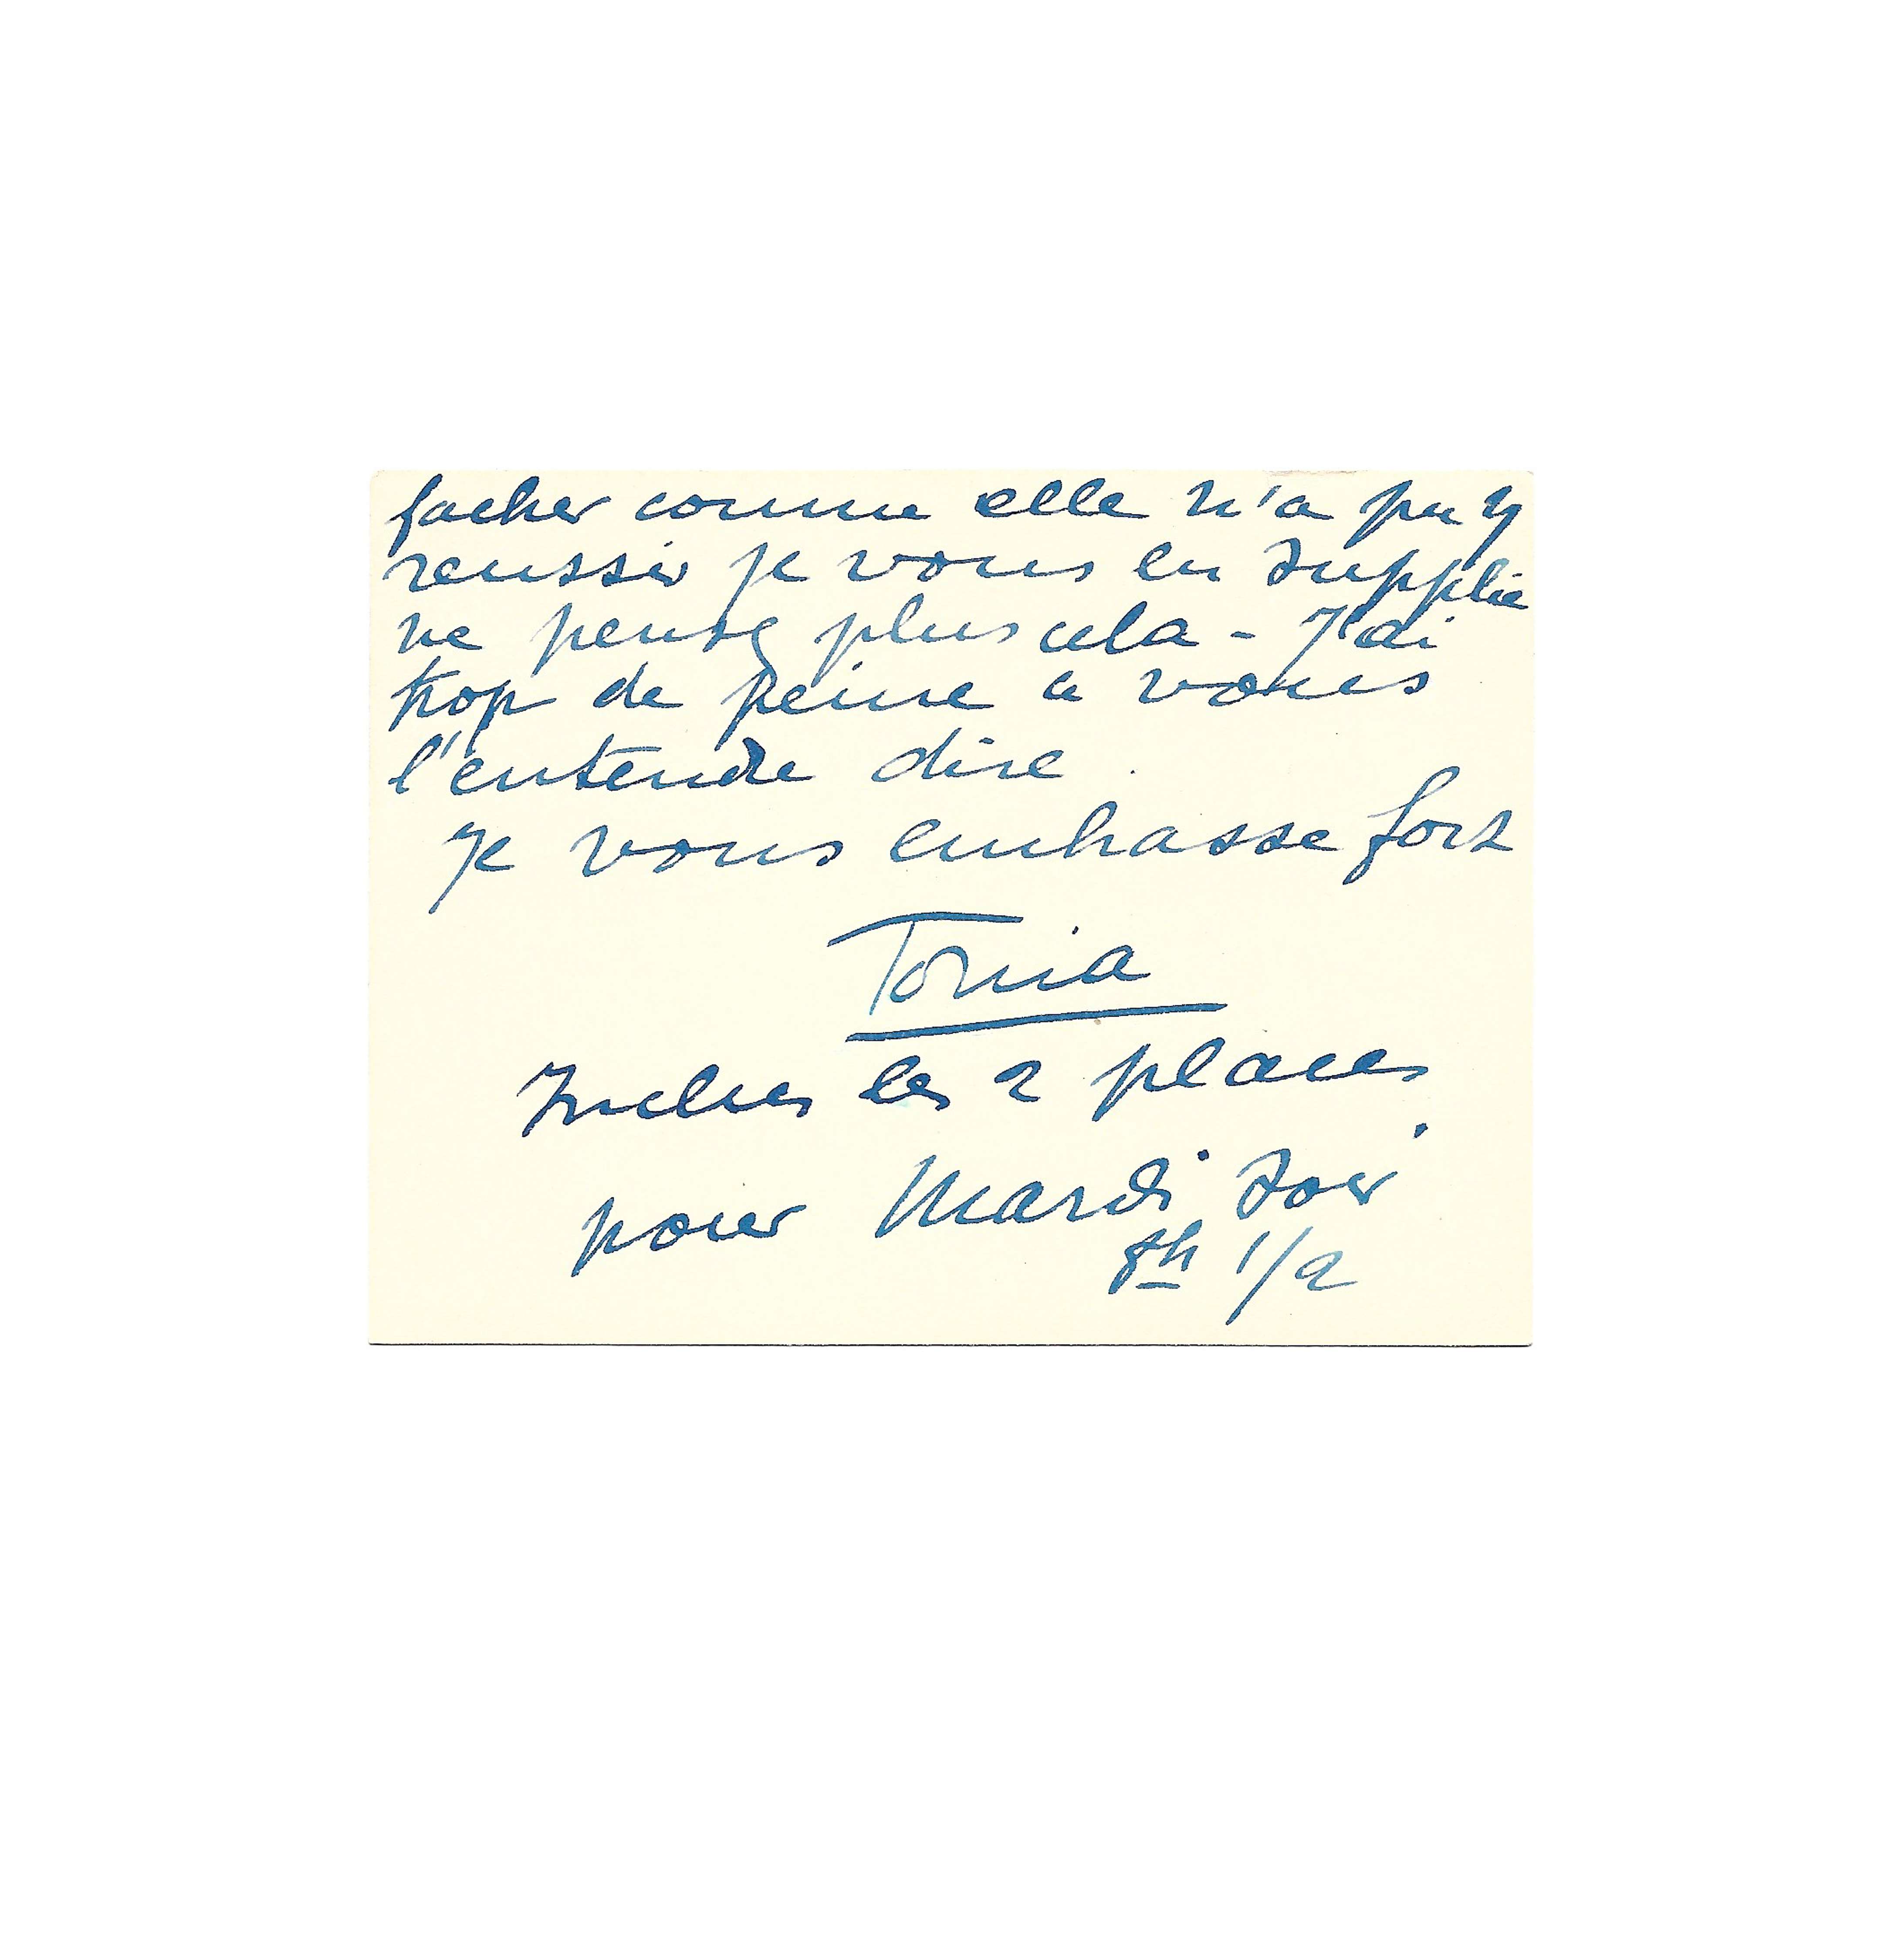 facher comme elle n'a pu y
reussir je vous en supplie
ne pensez plus cela - J'ai
trop de peine a vous
l'entendre dire.
Je vous embrasse fort
Tonia
Inclus les 2 places
pour Mardi soir
8h 1/2